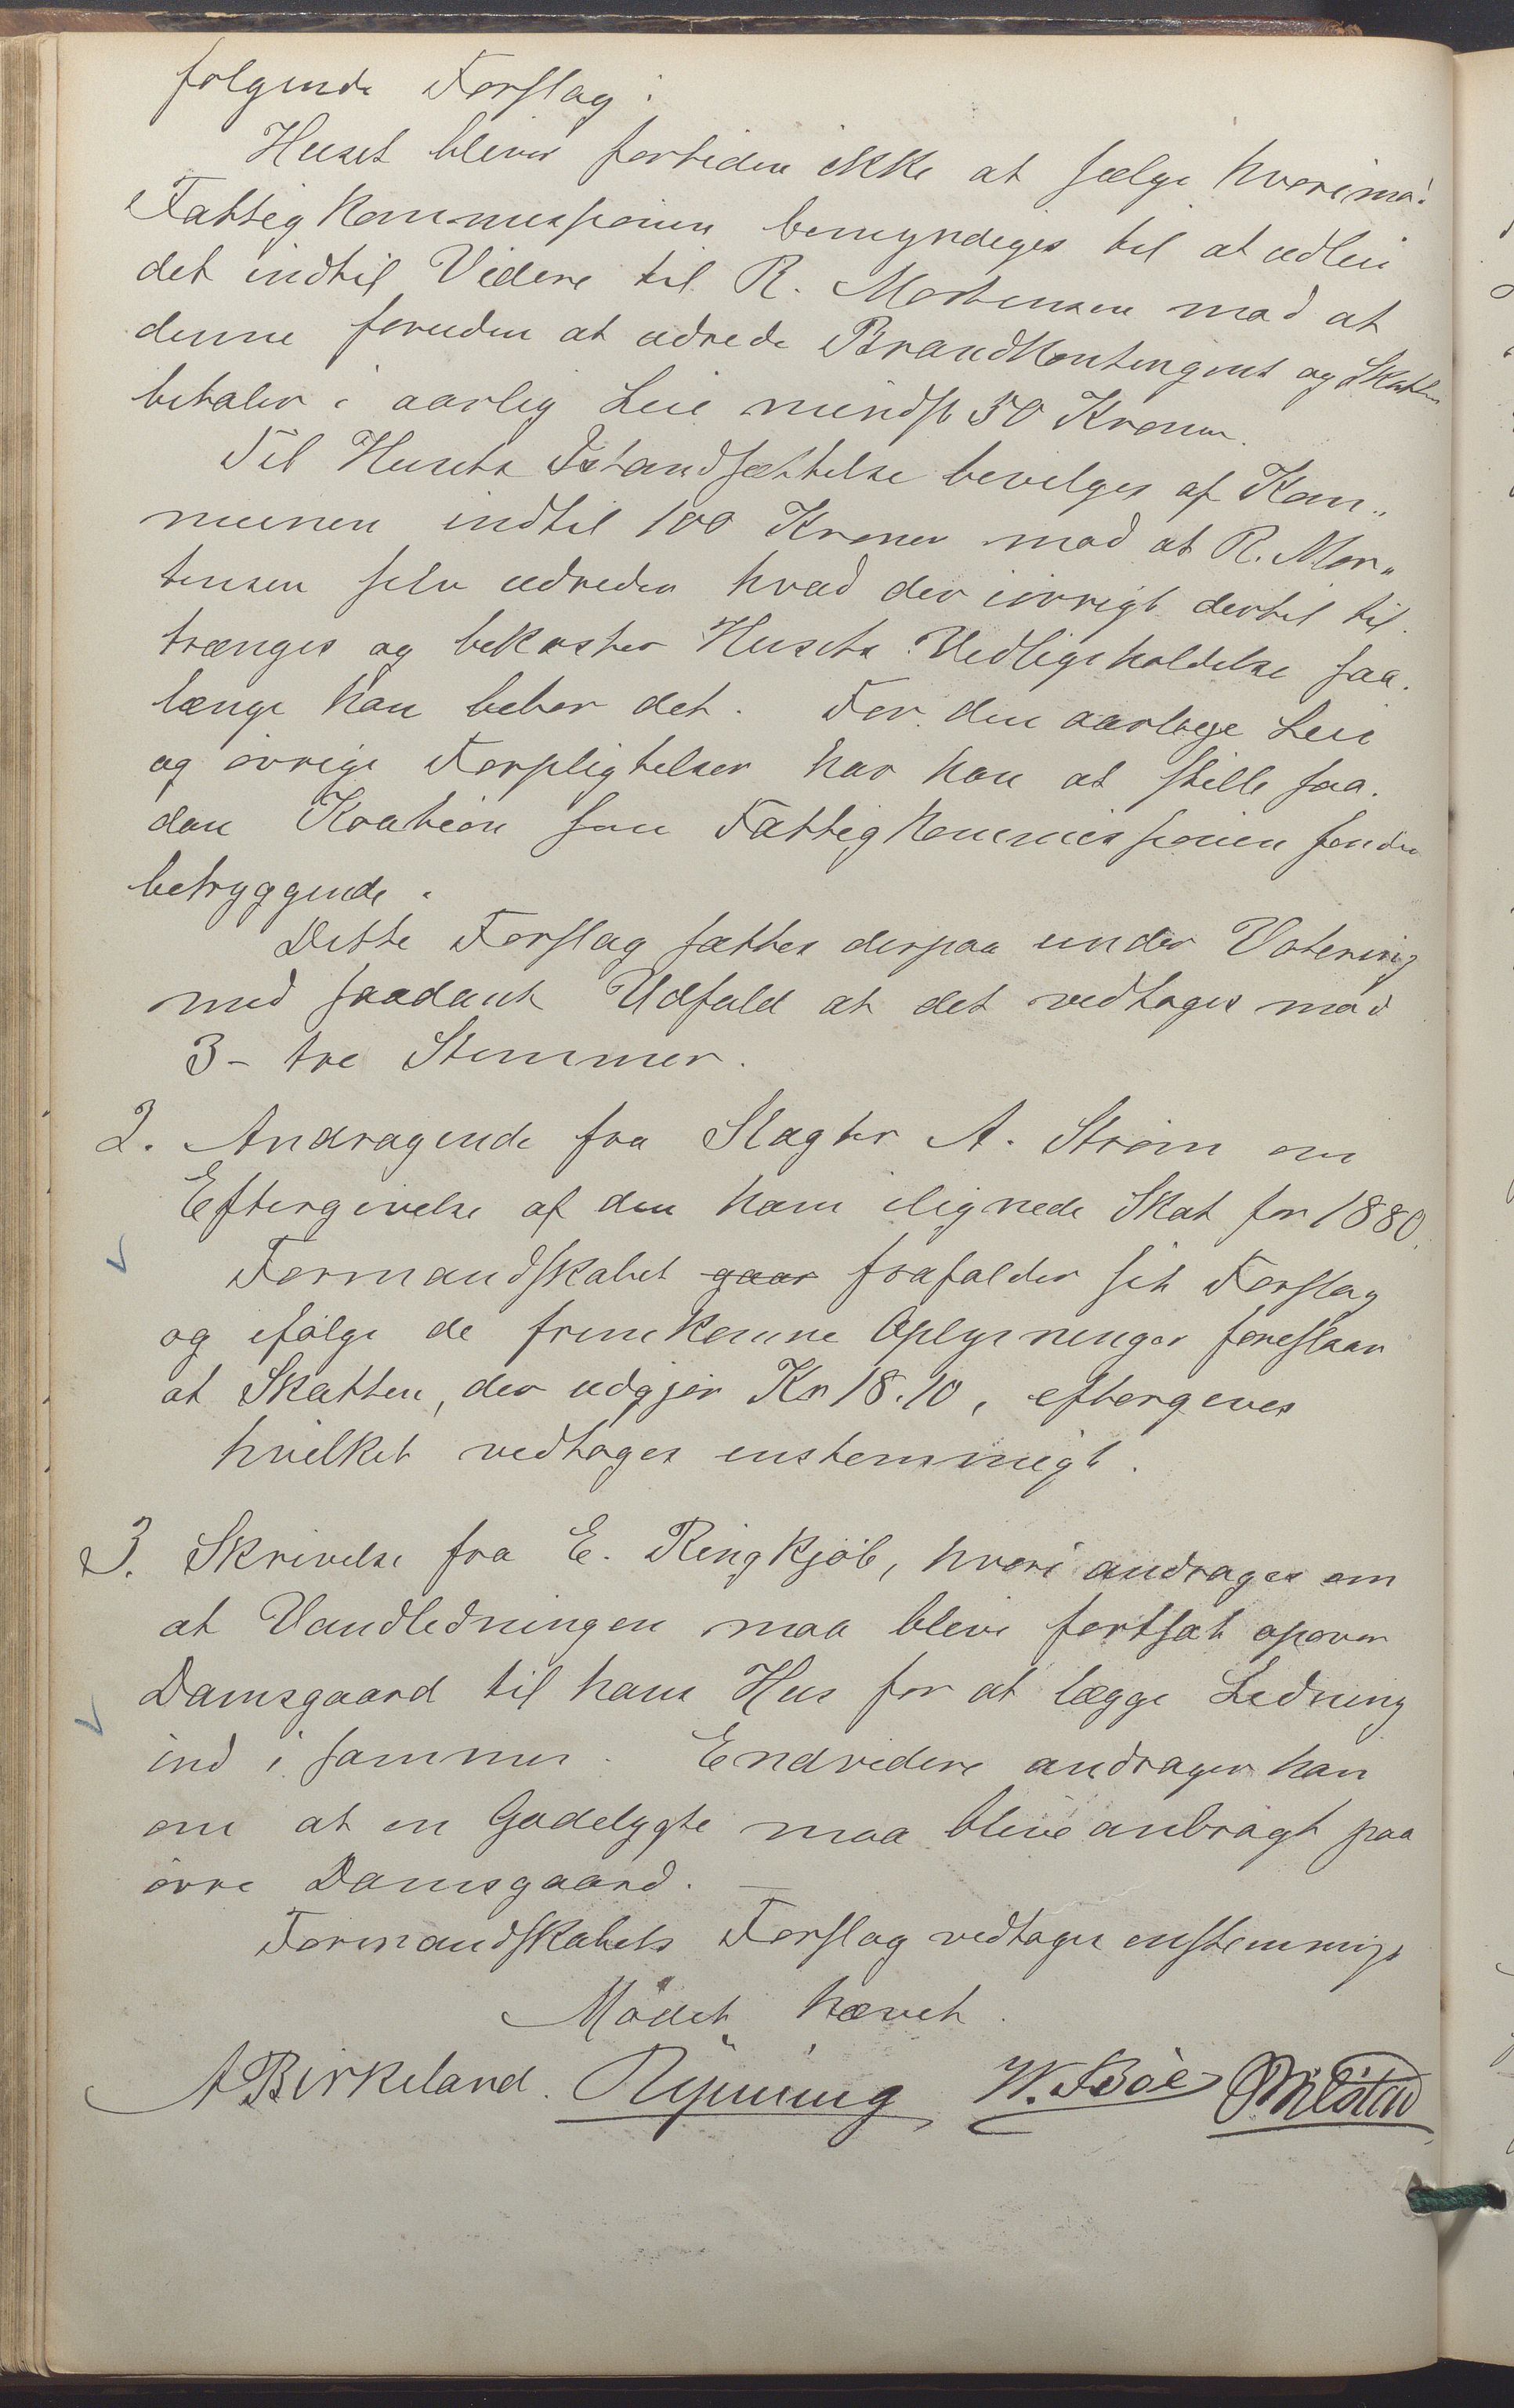 følgende Forslag:
Huset bliver fortiden ikke at sælge hvorimod
Fattigkommissionen bemyndiges til at udleie
det indtil Videre til R. Mortensen mod at
denne foruden at udrede Brandkontingent og Skatter
betaler i aarlig Leie mindst 50 Kroner.
Til Husets Istandsættelse bevilges af Kom„
munen indtil 100 Kroner mod at R. Mor„
tensen selv udreder hvad der iøvrigt dertil til
trænges og bekoster Husets Vedligeholdelse saa
længe han bebor det. For den aarlige Leie
og øvrige Forpligtelser har han at stille saa
dan Kaution som Fattigkommissionen finder
betryggende.
Dette Forslag sættes derpaa under Votering
med saadant Udfald at det vedtages mod
3 - tre Stemmer.
2. Andragende fra Slagter A. Strøm om
Eftergivelse af den ham ilignede Skat for 1880.
Formandskabet gaar frafalder sit Forslag
og ifølge de fremkomne Oplysninger foreslaar
at Skatten, der udgjør Kr 18.10, eftergives
hvilket vedtages enstemmigt.
3. Skrivelse fra E. Ringkjøb, hvori andrages om
at Vandledningen maa blive fortsat opover
Damsgaard til hans Hus for at lægge Ledning
ind i samme. Endvidere andrager han
om at en Gadelygte maa blive anbragt paa
øvre Damsgaard. —
Formandskabets Forslag vedtages enstemmigt
Mødet hævet.
A Birkeland. Rynning W. Bøe